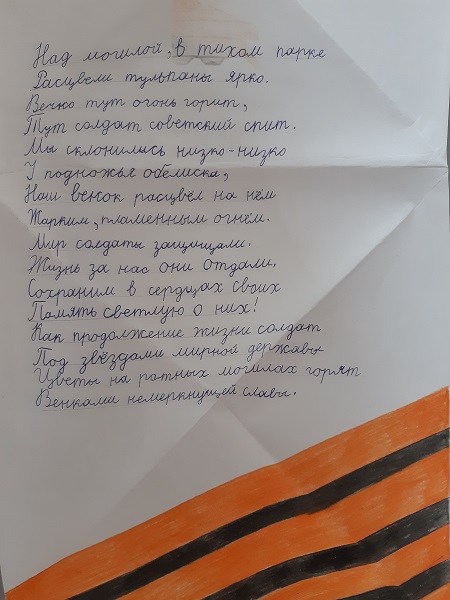 Над могилой, в тихом парке
Расцвели тульпаны ярко.
Вечно тут огонь горит,
Тут солдат советский спит.
Мы склонились низко-низко
У подножья обелиска,
Наш венок расцвёл на нём
Жарким, пламенным огнём.
Мир солдаты защищали.
Жизнь за нас они отдали,
Сохраним в сердцах своих
Память светлую о них!
Как продолжение жизни солдат
Под звёздами мирной державы
Цветы на ратных могилах горят
Венками немеркнущей славы.